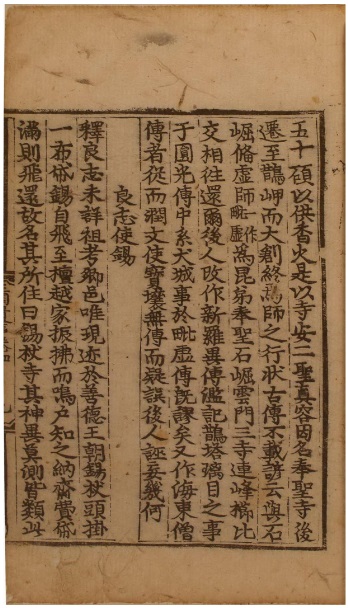 五十碩以供香火是以寺安二聖眞容因名奉聖寺後
遷至鵲岬而大創終焉師之行狀古傳不載諺云與石
崛俻虛師一作毗虛爲昆弟奉聖石崛雲門三寺連峰櫛比
交相往還爾後人改作新羅異傳濫記鵲塔璃目之事
于圓光傳中系大城事於毗虛傳旣謬矣又作海東僧
傳者從而潤文使寶壤無傳而疑誤後人誣妄幾何
良志使錫
釋良志未詳祖考鄉邑唯現迹於善德王朝錫杖頭掛
一布帒錫自飛至檀越家振拂而鳴戶知之納齋費帒
滿則飛還故名其所住曰錫杖寺其神異莫測皆類此